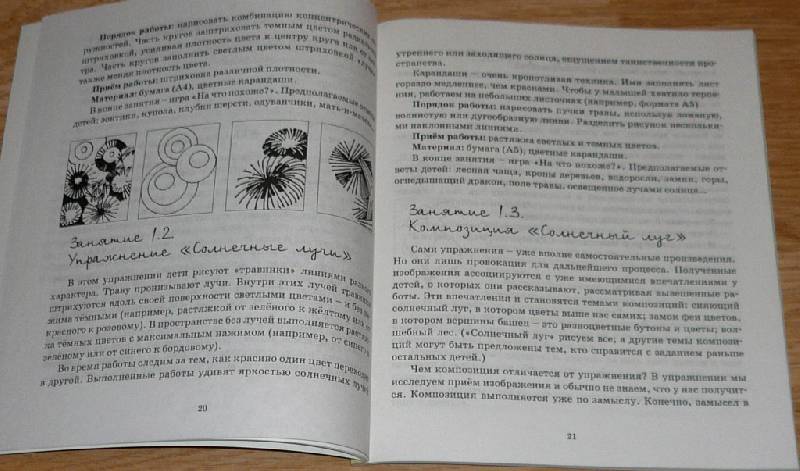 Порядок работы: нарисовать комбинацию концентрических ок-
ружностей. Часть кругов заштриховать тёмным цветом
штриховкой, усиливая плотность цвета к центру круга или от
тра. Часть кругов заполнить светлым цветом штриховкой
также меняя плотность цвета.
Приём работы: штриховка различной плотности.
Материал: бумага (А4), цветные карандаши.
В конце занятия – игра «На что похоже?». Предполагаемые
детей: зонтики, купола, клубки шерсти, одуванчики, мать-и-мачеха
Занятие 1.2.
Упражнение «Солнечные лучи»
В этом упражнении дети рисуют «травинки» линиями разного
характера. Траву пронизывают лучи. Внутри этих лучей травинки
штрихуются вдоль своей поверхности светлыми цветами – а без на-
жима тёмными (например, растяжкой от зелёного к жёлтому или от
красного к розовому). В пространстве без лучей выполняется растяж-
ка тёмных цветов с максимальным нажимом (например, от синего к
зелёному или от синего к бордовому).
Во время работы следим за тем, как красиво один цвет переходит
в другой. Выполненные работы удивят яркостью солнечных лучей
20
утреннего или заходящего солнца, ощущением таинственности про-
странства.
Карандаши – очень кропотливая техника. Ими заполнить лист
гораздо медленнее, чем красками. Чтобы у малышей хватило терпе-
ния, работаем на небольших листочках (например, формата А5)
Порядок работы: нарисовать пучки травы, используя ломаную,
волнистую или дугообразную линии. Разделить рисунок нескольки-
ми наклонными линиями.
Приём работы: растяжка светлых и тёмных цветов.
Материал: бумага (А5), цветные карандаши.
В конце занятия – игра «На что похоже?». Предполагаемые от-
веты детей: лесная чаща, кроны деревьев, водоросли, замки, горы,
огнедышащий дракон, поле травы, освещенное лучами солнца...
Занятие 1.3.
Композиция «Солнечный луг»
Сами упражнения – уже вполне самостоятельные произведения.
Но они лишь провокация для дальнейшего процесса. Полученные
изображения ассоциируются с уже имеющимися впечатлениями у
детей, о которых они рассказывают, рассматривая вывешенные ра-
боты. Эти впечатления и становятся темами композиций: сияющий
солнечный луг, в котором цветы выше нас самих; замок феи цветов,
в котором вершины башен – это разноцветные бутоны и цветы; вол-
шебный лес. («Солнечный луг» рисуем все; а другие темы компози-
ций могут быть предложены тем, кто справится с заданием раньше
остальных детей.)
Чем композиция отличается от упражнения? В упражнении мы
исследуем приём изображения и обычно не знаем, что у нас получит-
ся. Композиция выполняется уже по замыслу. Конечно, замысел в
21